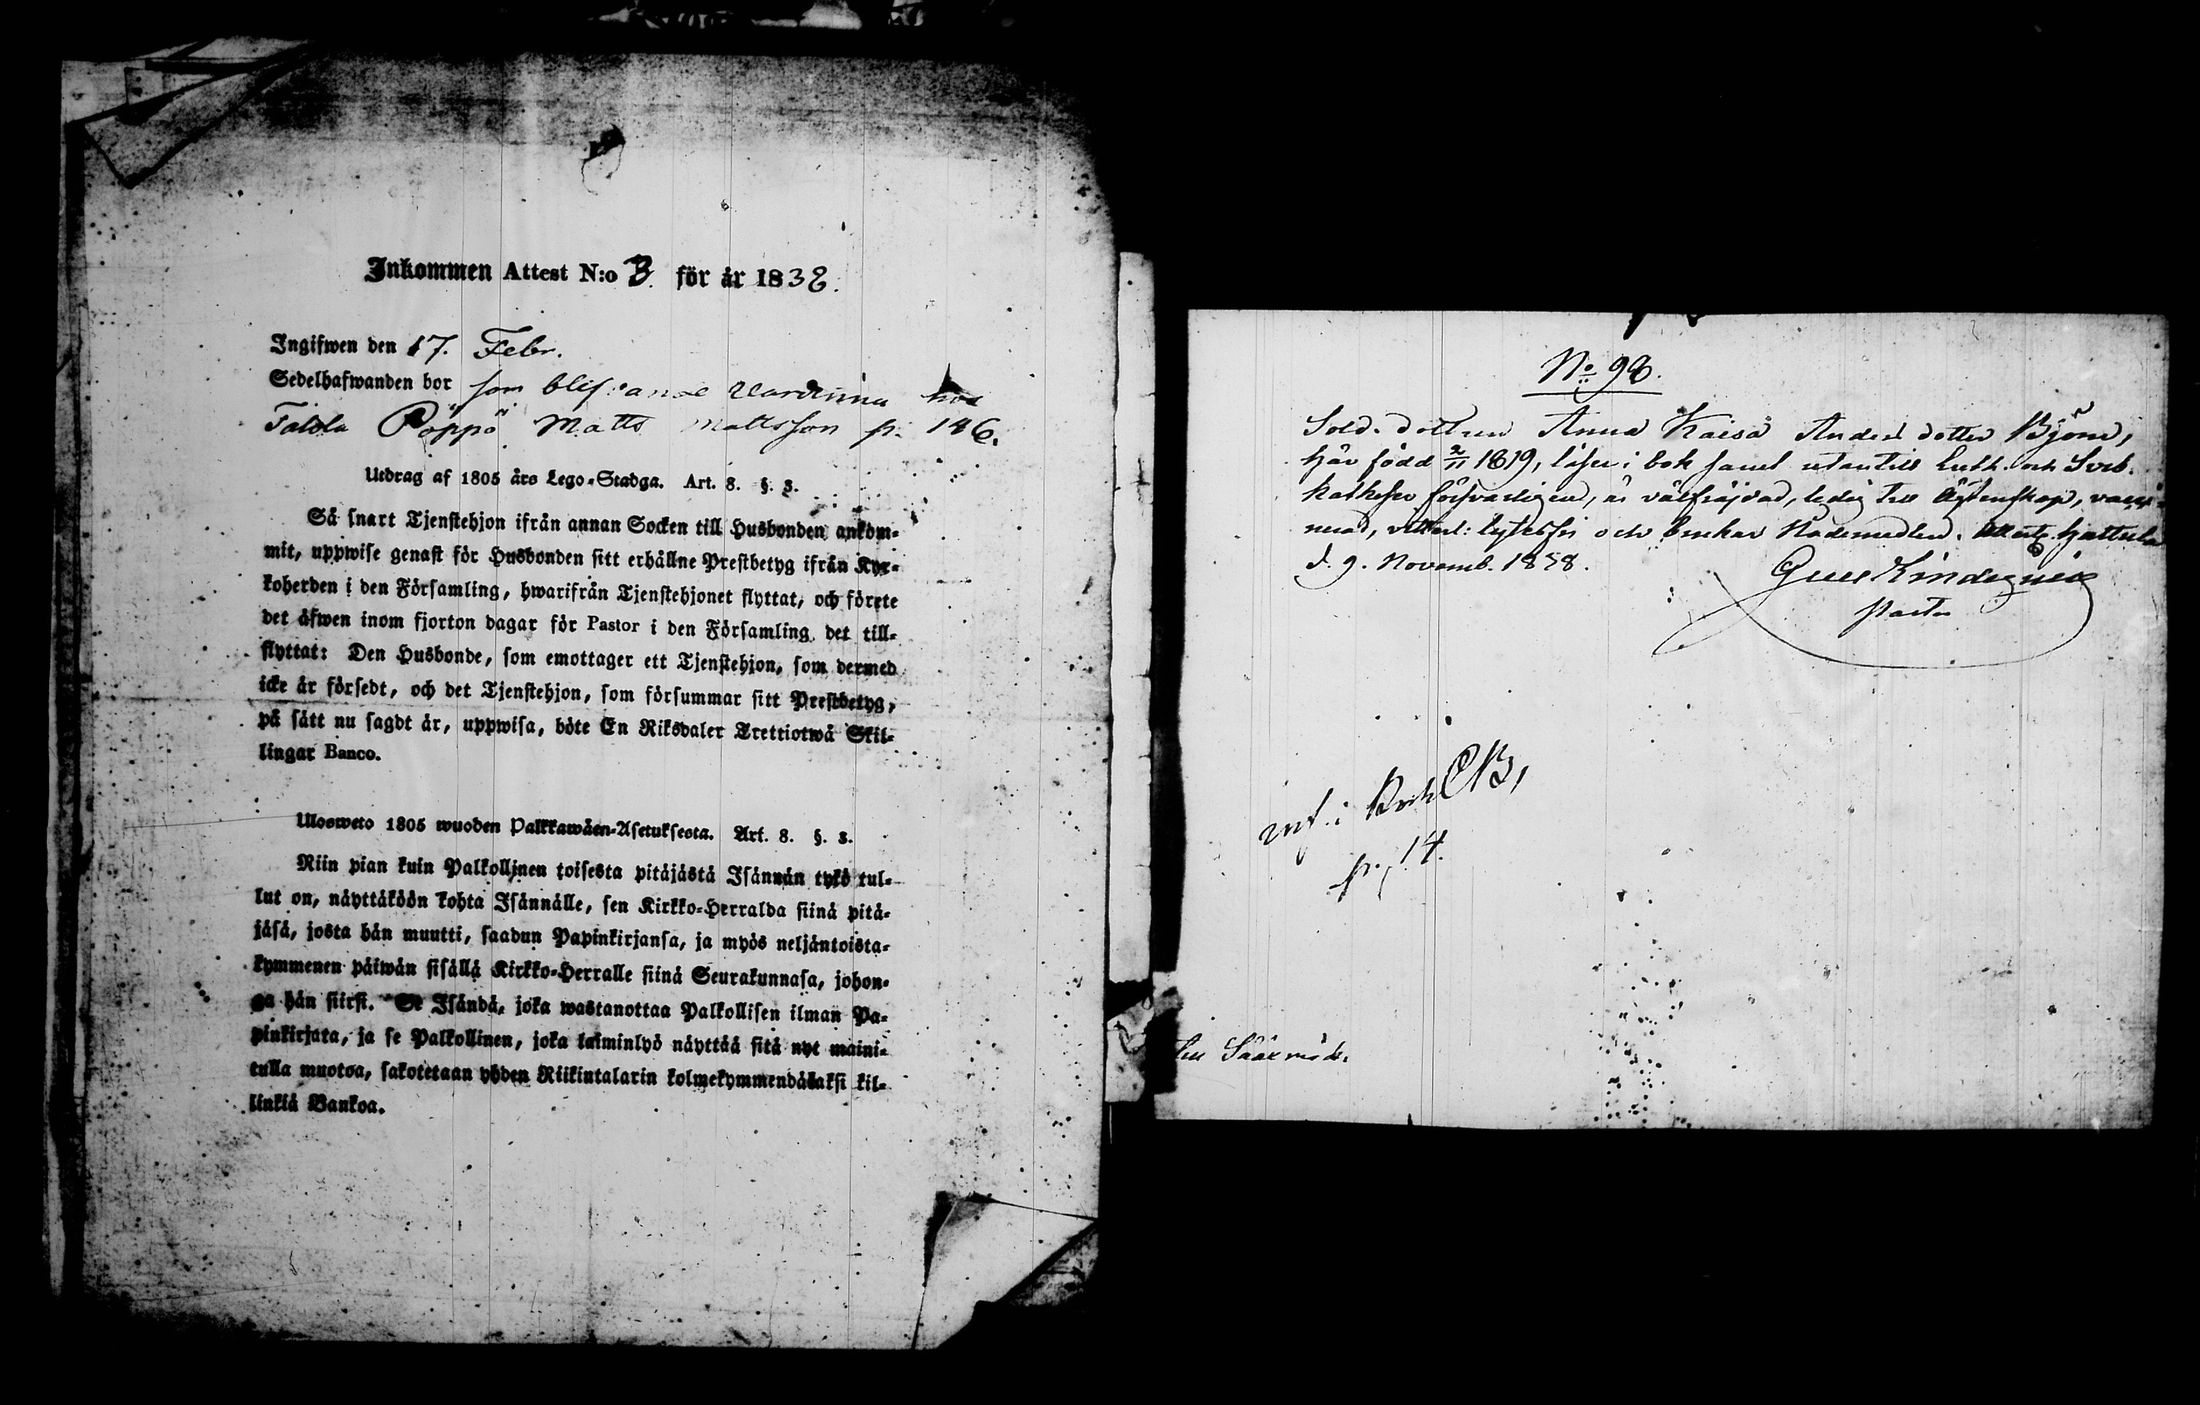 Inkommen Attest N:o 3. för år 1838.
Ingifwen den 17. Febr.
Sedelhafwanden bor som blif: ande värdinna hos
Talola Pöppö Matts Mattsson p. 146.
Utdrag af 1805 års Lego-Stadga. Art. 8. §. 3.
Så snart Tjenstehjon ifrån annan Socken till Husbonden ankom-
mit, uppwise genast för Husbonden sitt erhållne Prestbetyg ifrån Kyr-
koherden i den Församling, hwarifrån Tjenstehjonet flyttat, och förete
det äfwen inom fjorton dagar för Pastor i den Församling det till-
flyttat: Den Husbonde, som emottager ett Tjenstehjon, som dermed
icke är försedt, och det Tjenstehjon, som försummar sitt Prestbetyg,
på sätt nu sagdt är, uppwisa, böte En Riksdaler Trettiotwå Skil-
lingar Banco.
Ulosweto 1805 wuoden Palkkawäen-Asetuksesta. Art. 8. §. 3.
Niin pian kuin Palkollinen toisesta pitäjästä Isännän tykö tul-
lut on, näyttäköön kohta Isännälle, sen Kirkko-Herralda siinä pitä-
jäsä, josta hän muutti, saadun Papinkirjansa, ja myös neljäntoista-
kymmenen päiwän sisällä Kirkko-Herralle siinä Seurakunnasa, johon-
ga hän siirsi. Se Isändä, joka wastanottaa Palkollisen ilman Pa-
pinkirjata, ja se Palkollinen, joka laiminlyö näyttää sitä nyt maini-
tulla muotoa, sakotetaan yhden Riikintalarin kolmekymmendäkaksi kil-
linkiä Bankoa.
No 98.
Sold. dottren Anna Kaisa Anders dotter Björn,
här född 2/11 1819, läser i bok samt utantill Luth. och Sveb.
katheser försvarligen, är välfräjdad, ledig till äktenskap, vacci-
nerad, lytesfri och brukar Nademedlen. Hattula
d. 9. Novemb. 1838.
Pastor
inf. i
p. 14.
Sääxmäki.